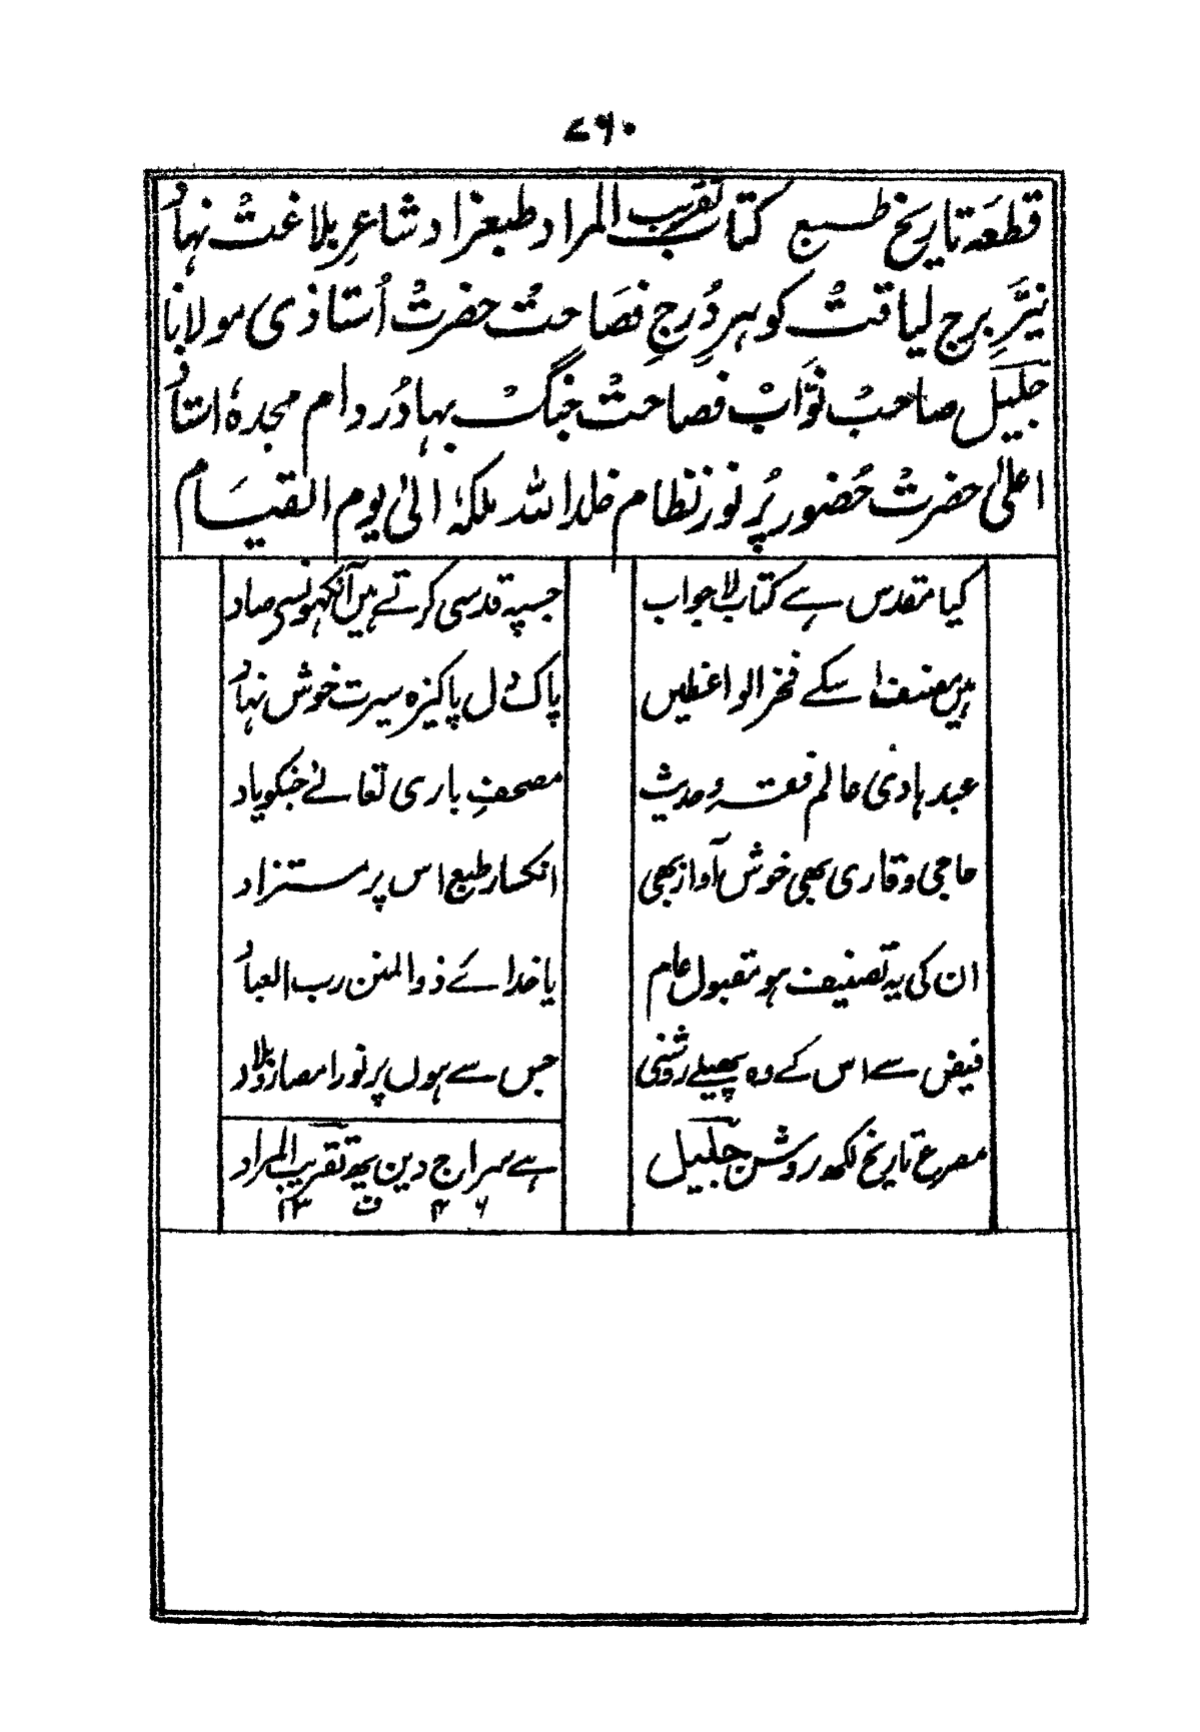 ۷۶۰
قطعہ تاریخ طبع کتاب تقریب المراد طبعزاد شاعرِ بلاغت نہاد
نیّرِ برج لیاقت گوہر دُرجِ فصَاحت حضرت اُستاذی مولانا
جلیل صاحب نوّاب فصاحت جنگ بہادُر دام مجدہٗ استاد
اعلیٰ حضرت حُضور پُرنور نظام خلد اللہ ملکہٗ الیٰ یوم القیَام
کیا مقدس ہے کتاب لا جواب جسپہ قدسی کرتے ہیں آنکھونسے صاد
ہیں مصنف اسکے فخر الواعظیں پاک دل پاکیزہ سیرت خوش نہاد
عبد ہادی عالم فقہ و حدیث مصحفِ باری تعالےٰ جنکو یاد
حاجی و قاری بھی خوش آواز بھی انکسار طبع اس پر مستزاد
ان کی یہ تصنیف ہو مقبول عام یا خدائے ذوالمنن رب العباد
فیض سے اس کے وہ پھیلے روشنی جس سے ہوں پرنور امصار و بلاد
مصرع تاریخ لکھ روشن جلیل ہے سراج دین یہ تقریب المراد
۶ ۴ ف ۱۳